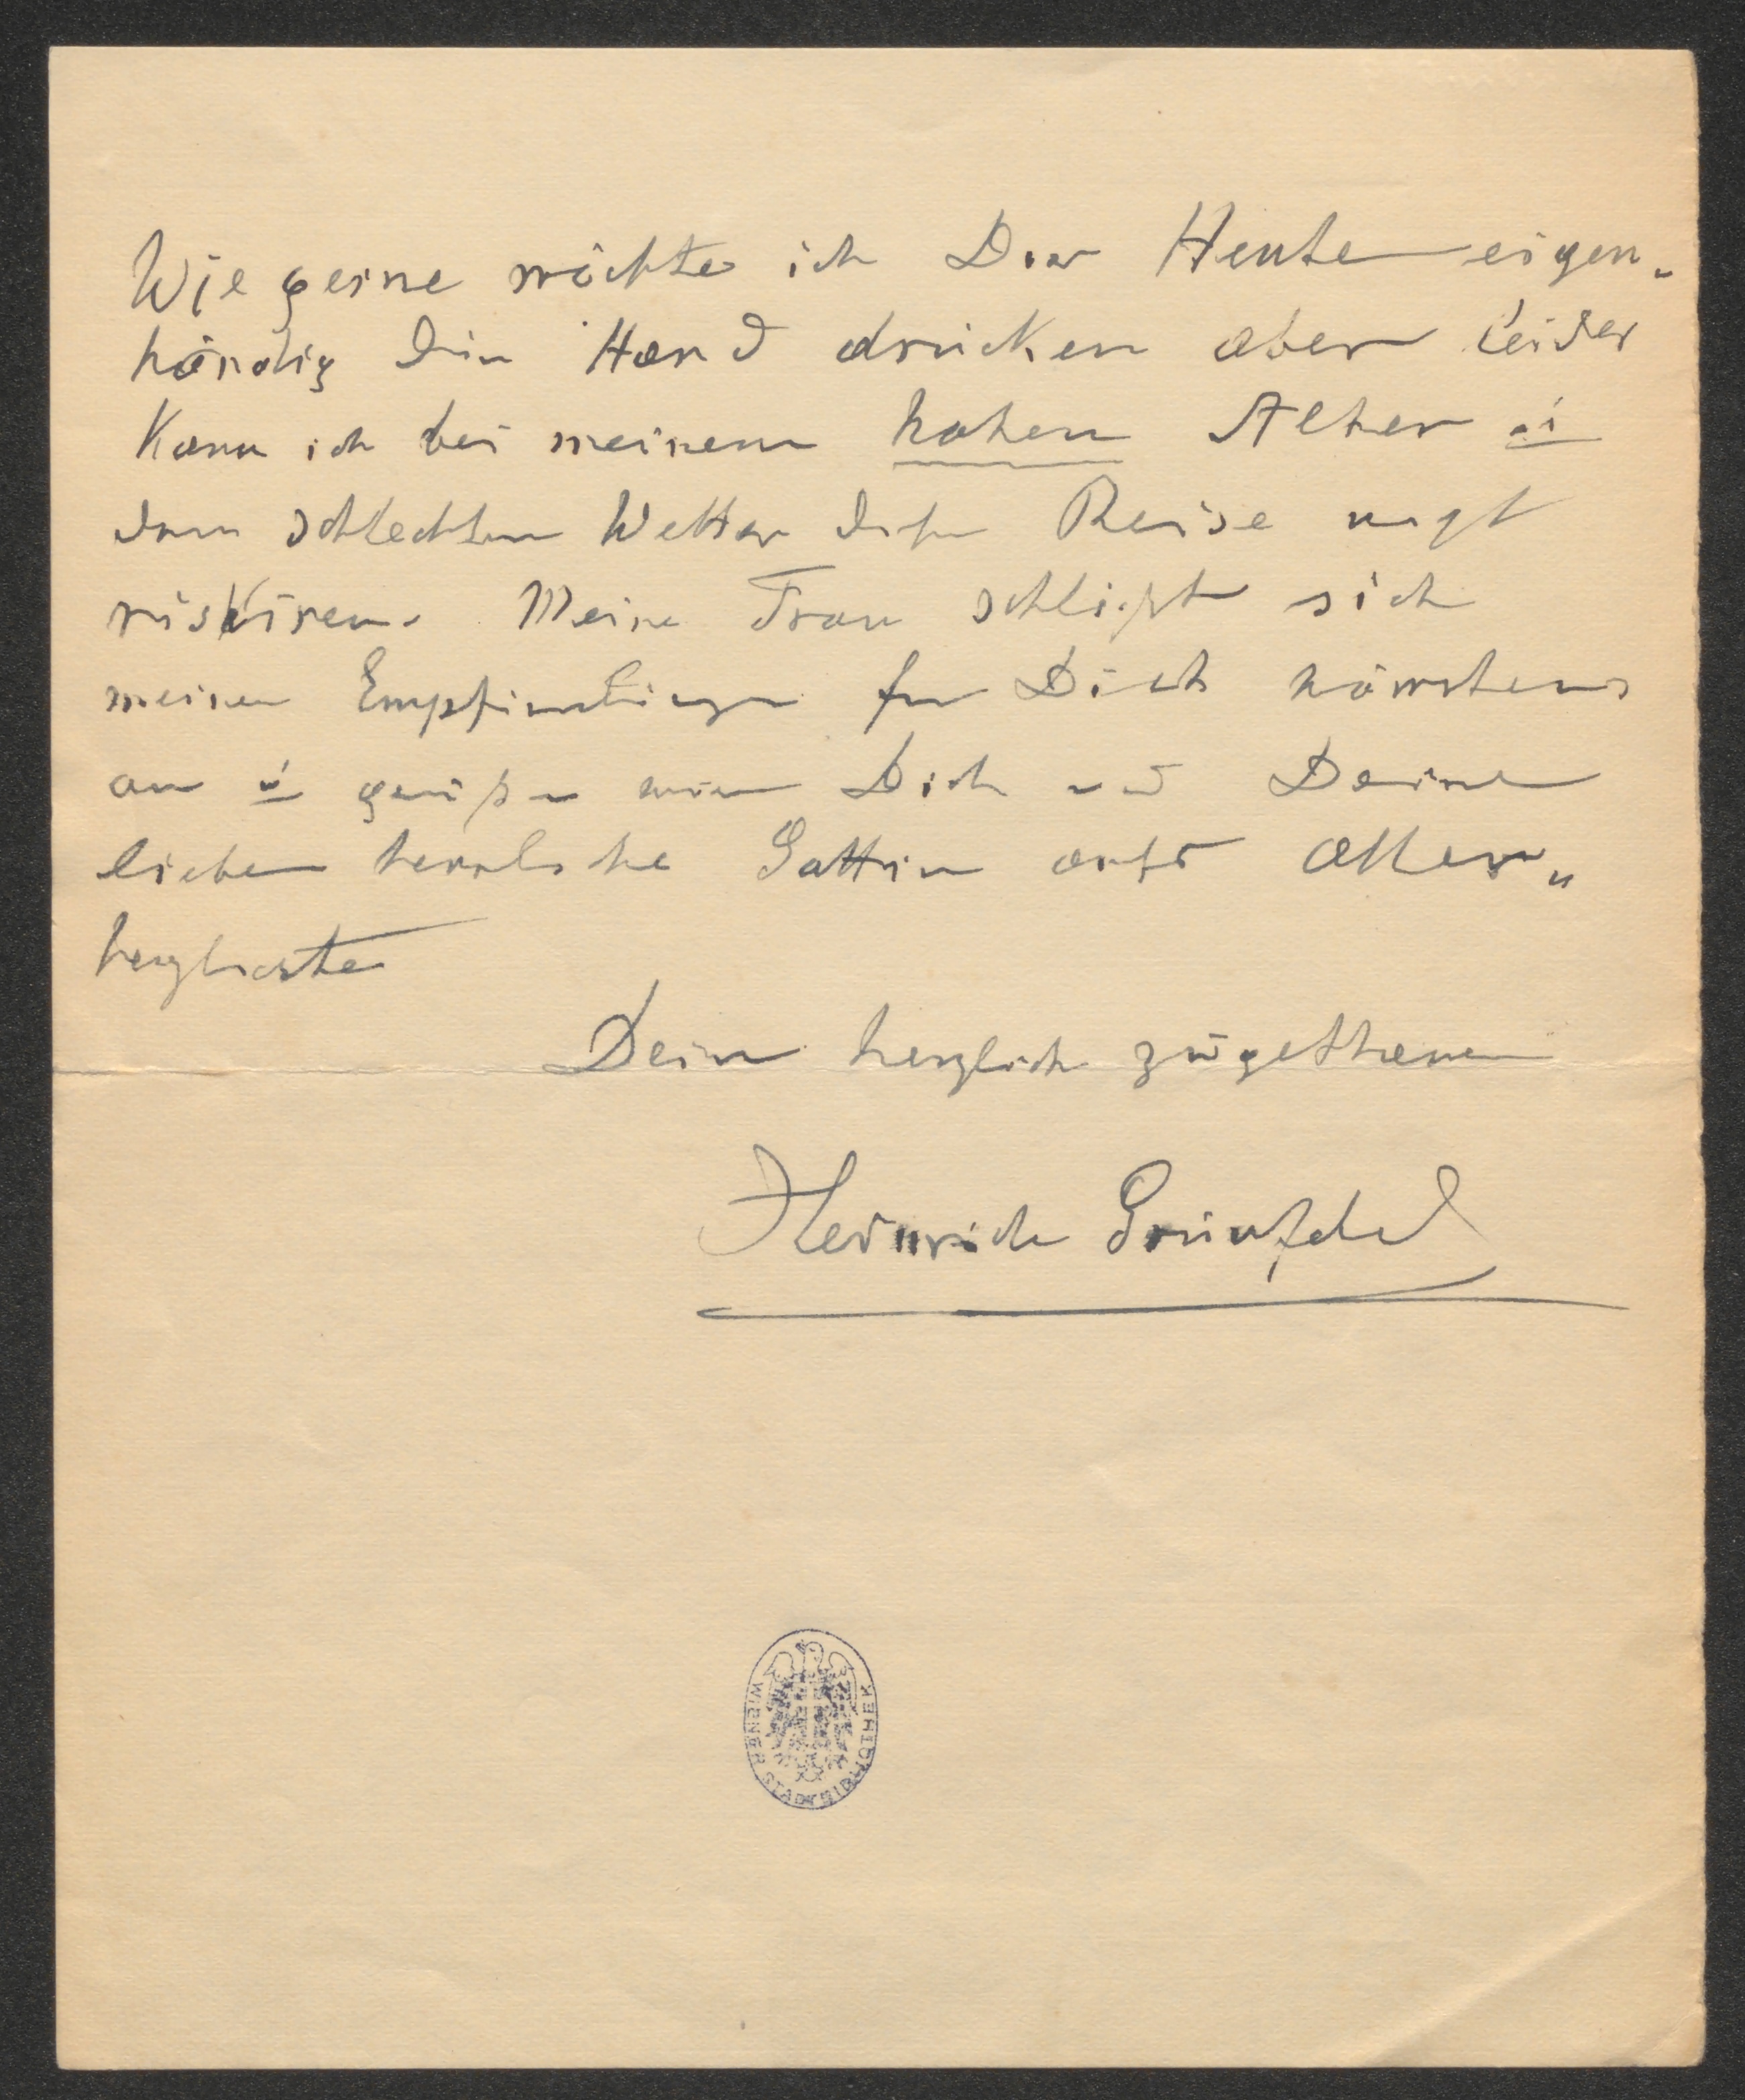 Wie gerne möchte ich Dir Heute eigen„
händig die Hand drücken aber leider
Kann ich bei meinem hohen Alter u
dem schlechten Wetter diese Reise nicht
riskiren. Meine Frau schließt sich
meinen Empfindungen für Dich wärmstens
an u grüßen wir Dich und Deine
lieben herrliche Gattin aufs Aller„
herzlichste
Dein herzlich zugethaner
Heinrich Grünfeld
WIENER STADTBIBLIOTHEK